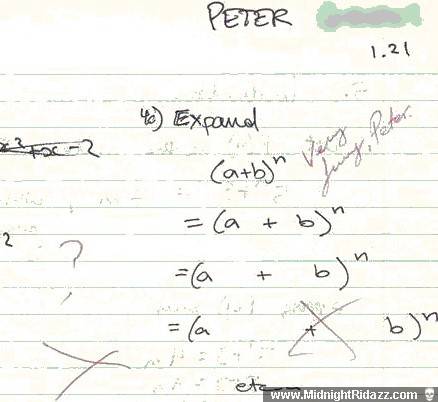 PETER
1.21
4c) Expand
x² + x - 2
(a+b)ⁿ
Very funny, Peter.
= (a + b)ⁿ
2
?
= (a + b)ⁿ
= (a + b)ⁿ
etc...
www.MidnightRidazz.com